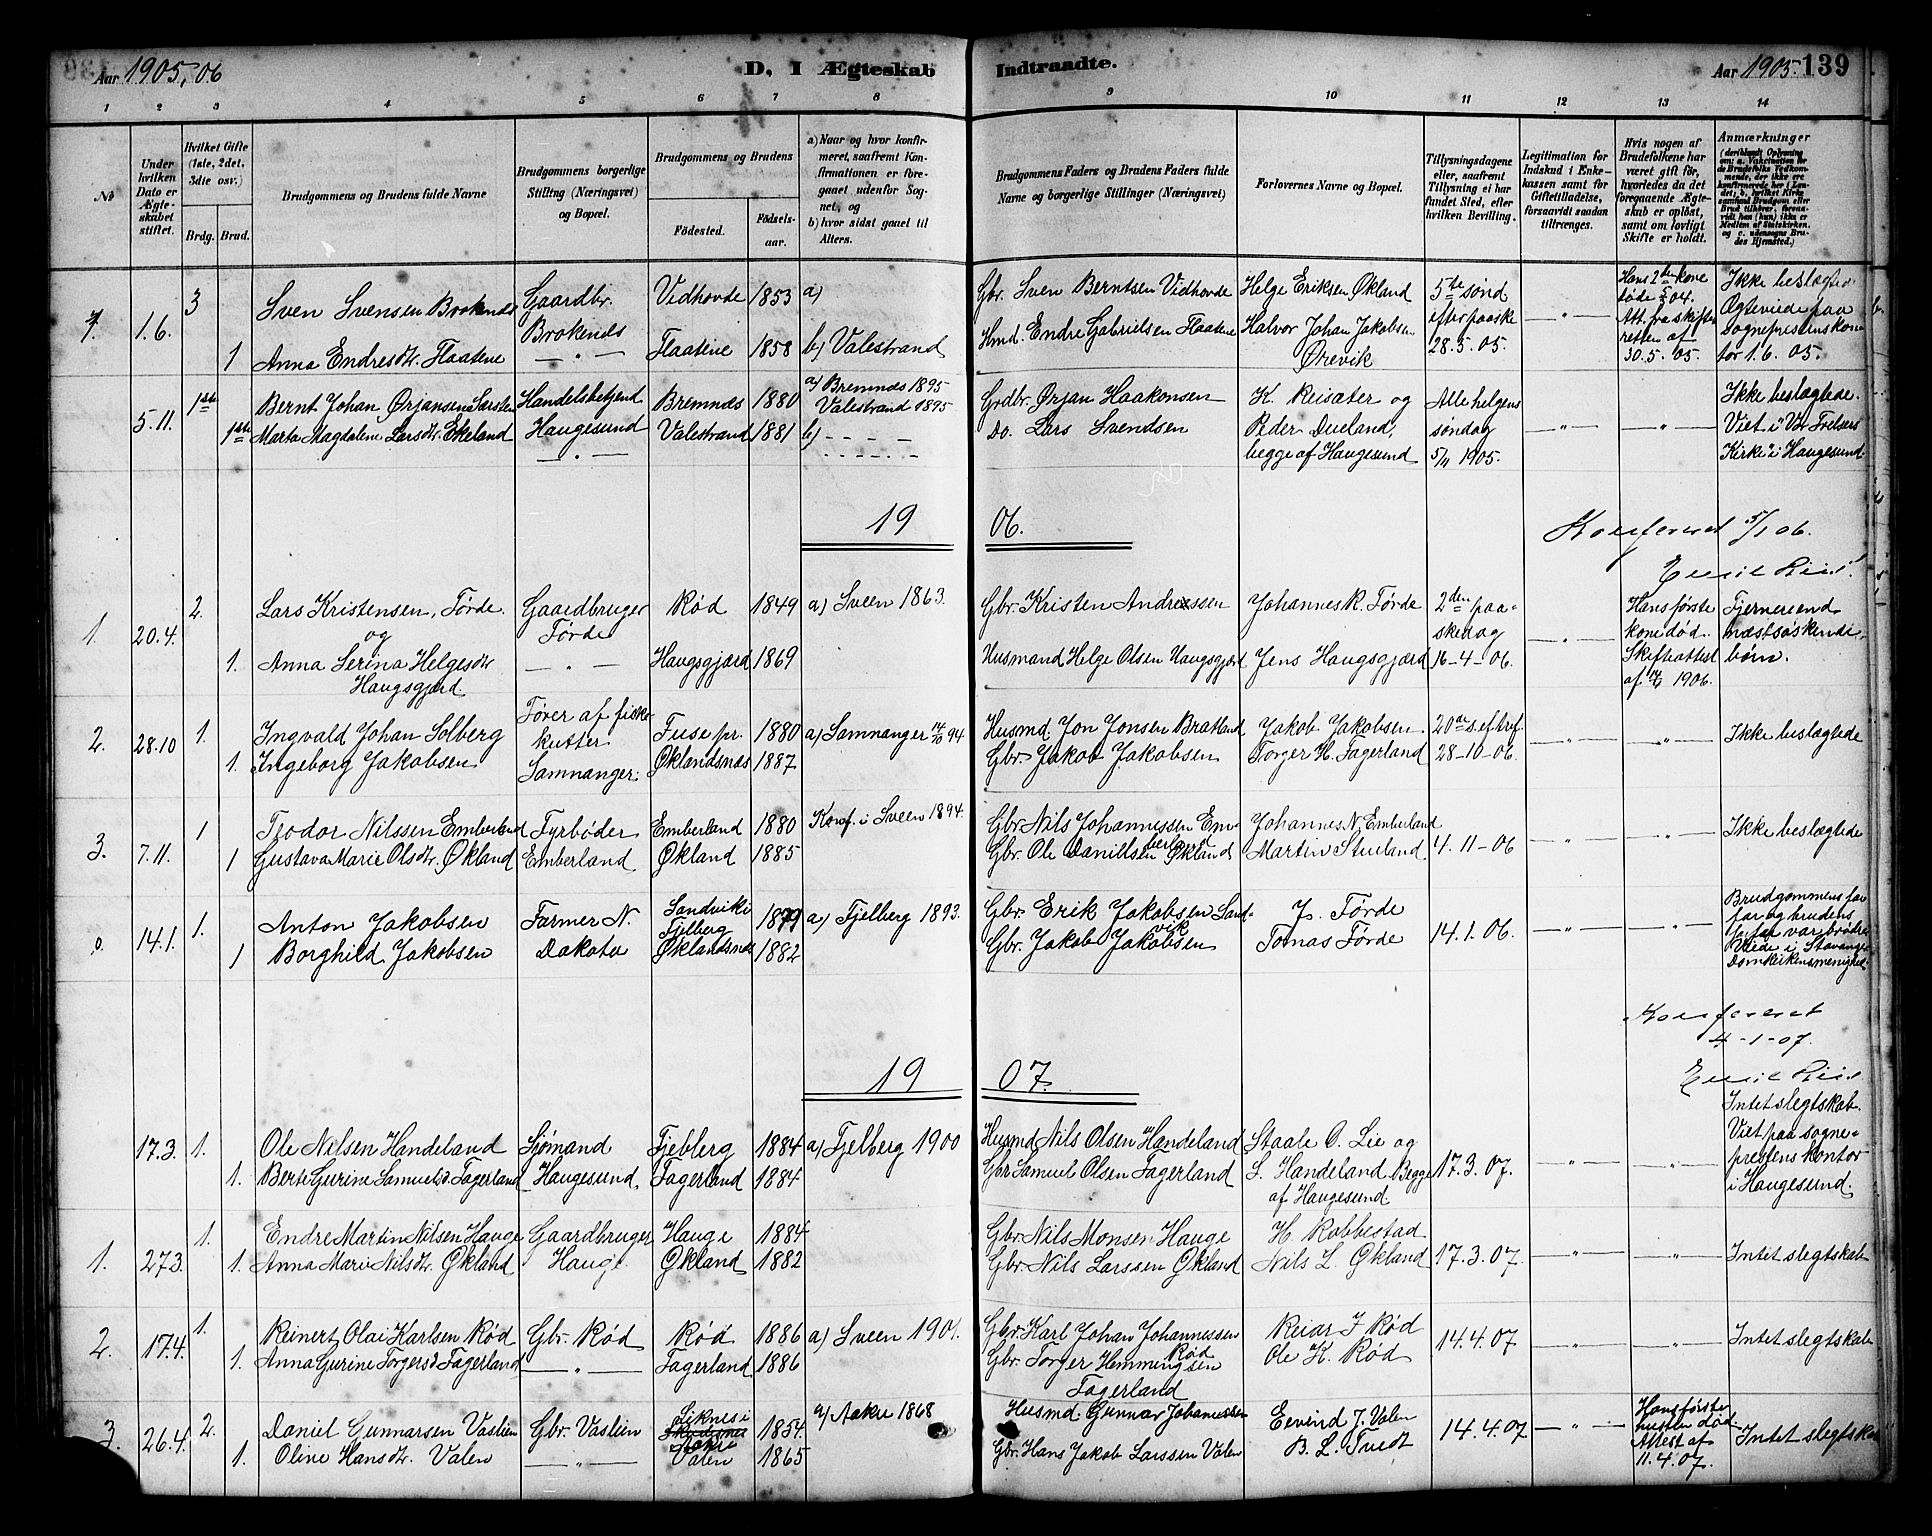 Aar 1905, 06
D, I Ægteskab
Indtraadte.
Aar 1905. 139
1 2 3 4 5 6 7 8 9 10 11 12 13 14
No
Under hvilken Dato er Ægteskabet stiftet.
Hvilket Gifte (1ste, 2det, 3die osv.)
Brdg. Brud.
Brudgommens og Brudens fulde Navne
Brudgommens borgerlige Stilling (Næringsvei) og Bopæl.
Brudgommens og Brudens
Fødested. Fødselsaar.
a) Naar og hvor konfirmeret, saafremt Konfirmationen er foregaaet udenfor Sognet, og
b) hvor sidst gaaet til Alters.
Brudgommens Faders og Brudens Faders fulde Navne og borgerlige Stillinger (Næringsvei)
Forlovernes Navne og Bopæl.
Tillysningsdagene eller, saafremt Tillysning ei har fundet Sted, efter hvilken Bevilling.
Legitimation for Indskud i Enkekassen samt for Giftetilladelse, forsaavidt saadan tiltrænges.
Hvis nogen af Brudefolkene har været gift før, hvorledes da det foregaaende Ægteskab er opløst, samt om lovligt Skifte er holdt.
Anmærkninger
7. 1.6. 3 Sven Svensen Brokenes Gaardbr. Brokenes Vidhovde 1853 a) Gbr. Sven Berntsen Vidhovde Helge Eriksen Økland 5te sønd efter paaske 28.5.05. — " — Hans 2den kone døde 04. Att. fra skifteretten af 30.5.05. Ikke beslægtede Ægteviede paa sogneprestens kontor 1.6.05.
1 Anna Endresdtr. Flaatene — " — Flaatene 1858 b) Valestrand Hmd. Endre Gabrielsen Flaatene Halvor Johan Jakobsen Ørevik
5.11. 1ste Bernt Johan Ørjansen Handelsbetjend Haugesund Bremnæs 1880 a) Bremnæs 1895 Grdbr. Ørjan Haakonsen K. Reisæter og Alle helgens søndag 5/11 1905. — " — — " — Ikke beslægtede. Viet i Vor Frelsers Kirke i Haugesund.
1ste Marta Magdalene Larsdtr. Ekeland — " — Valestrand 1881 Valestrand 1895 b) — — — Do. Lars Svendsen Peder Dueland, begge af Haugesund
19 06.
Konfereret 5/1 06.
Emil Riis.
1. 20.4. 2. Lars Kristensen, Førde. og Gaardbruger Førde Rød 1849 a) Sveen 1863. Gbr. Kristen Andreassen Johannes K. Førde 2den paaskedag 16-4-06. — " — Hans første kone død. Skifteattest af 1906. Fjernere end næstsøskendebørn.
1. Anna Serina Helgesdtr Haugsgjærd. — " — Haugsgjærd 1869 Husmand Helge Olsen Haugsgjærd Jens Haugsgjærd
2. 28.10 1. Ingvald Johan Solberg Fører af fiskekutter Samnanger. Fuse pr. 1880 a) Samnanger 14/10 94 Husmd Jon Jonsen Bratland Jakob Jakobsen 20de s. eftr. 28-10-06. — " — — " — Ikke beslægtede
1. Ingeborg Jakobsen Øklandsnæs 1887 Gbr. Jakob Jakobsen Torger H. Fagerland
3. 7.11. 1 Teodor Nilssen Emberland Fyrbøder Emberland Emberland 1880 Konf. i Sveen 1894. Gbr. Nils Johannessen Emberland Johannes N. Emberland 4.11-06 — " — — " — Ikke beslægtede
1 Gustava Marie Olsdtr. Økland Økland 1885 Gbr. Ole Danielsen Økland Martin Stueland
0. 14.1. 1. Anton Jakobsen Farmer N. Dakota Sandviki Fjelberg 1879 a) Fjelberg 1893. Gbr. Erik Jakobsen Sandvik J. Førde 14.1.06. — " — — " — Brudgommens farfar og brudens farfar var brødre. Viede i Stavanger Domkirkesmenighed.
1 Borghild Jakobsen Øklandsnæs 1882 Gbr. Jakob Jakobsen Tomas Førde
Konfereret
4-1-07.
Emil Riis
19 07.
17.3. 1. Ole Nilsen Handeland Sjømand Haugesund. Fjelberg 1884 a) Fjelberg 1900 Husmd Nils Olsen Handeland Staale O. Lie og 17.3.07. — " — — " — Intet slegtskab. Viet paa sogneprestens kontor i Haugesund.
1. Berte Gurine Samuelsd. Fagerland Fagerland 1884 Gbr Samuel Olsen Fagerland S. Handeland. Begge af Haugesund
1. 27.3. 1. Endre Martin Nilsen Hauge Gaardbruger Hauge. Hauge 1884 Gbr. Nils Monsen Hauge H. Robbestad 17.3.07. — " — — " — Intet slegtskab
1. Anna Mari Nilsdtr. Økland Økland 1882 Gbr. Nils Larssen Økland Nils L. Økland
2. 17.4. 1. Reinert Olai Karlsen Rød Gbr. Rød Rød 1886 a) Sveen 1901. Gbr. Karl Johan Johannessen Rød Reiar J Rød 14.4.07 — " — — " — Intet slegtskab
1. Anna Gurine Torgersd. Fagerland — " — Fagerland 1886 Gbr. Torger Hemmingsen Fagerland Ole K. Rød
3. 26.4. 2. Daniel Gunnarsen Vaslien Gbr. Vaslien Liknes i 1854 a) Aakre 1868 Husmd. Gunnar Johannessen Eivind J. Valen 14.4.07 — " — Hans første hustru død. Attest af 11.4.07. Intet slegtskab
1. Oline Hansdtr. Valen — " — Valen 1865 Gbr. Hans Jakob Larssen Valen B. L. Tvedt